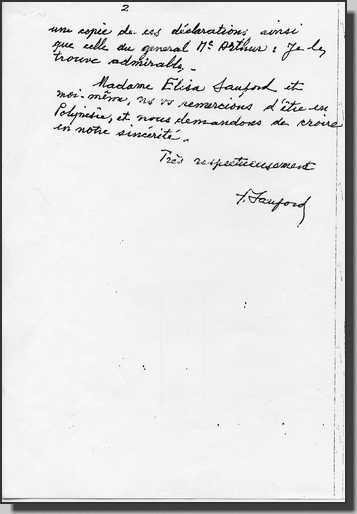 2
une copie de ces déclarations ainsi
que celle du general Mc Arthur : Je les
trouve admirables.
Madame Élisa Sanford et
moi-même, ns vs remercions d'être en
Polynésie, et nous demandons de croire
en notre sincérité.
Très respectueusement
F. Sanford